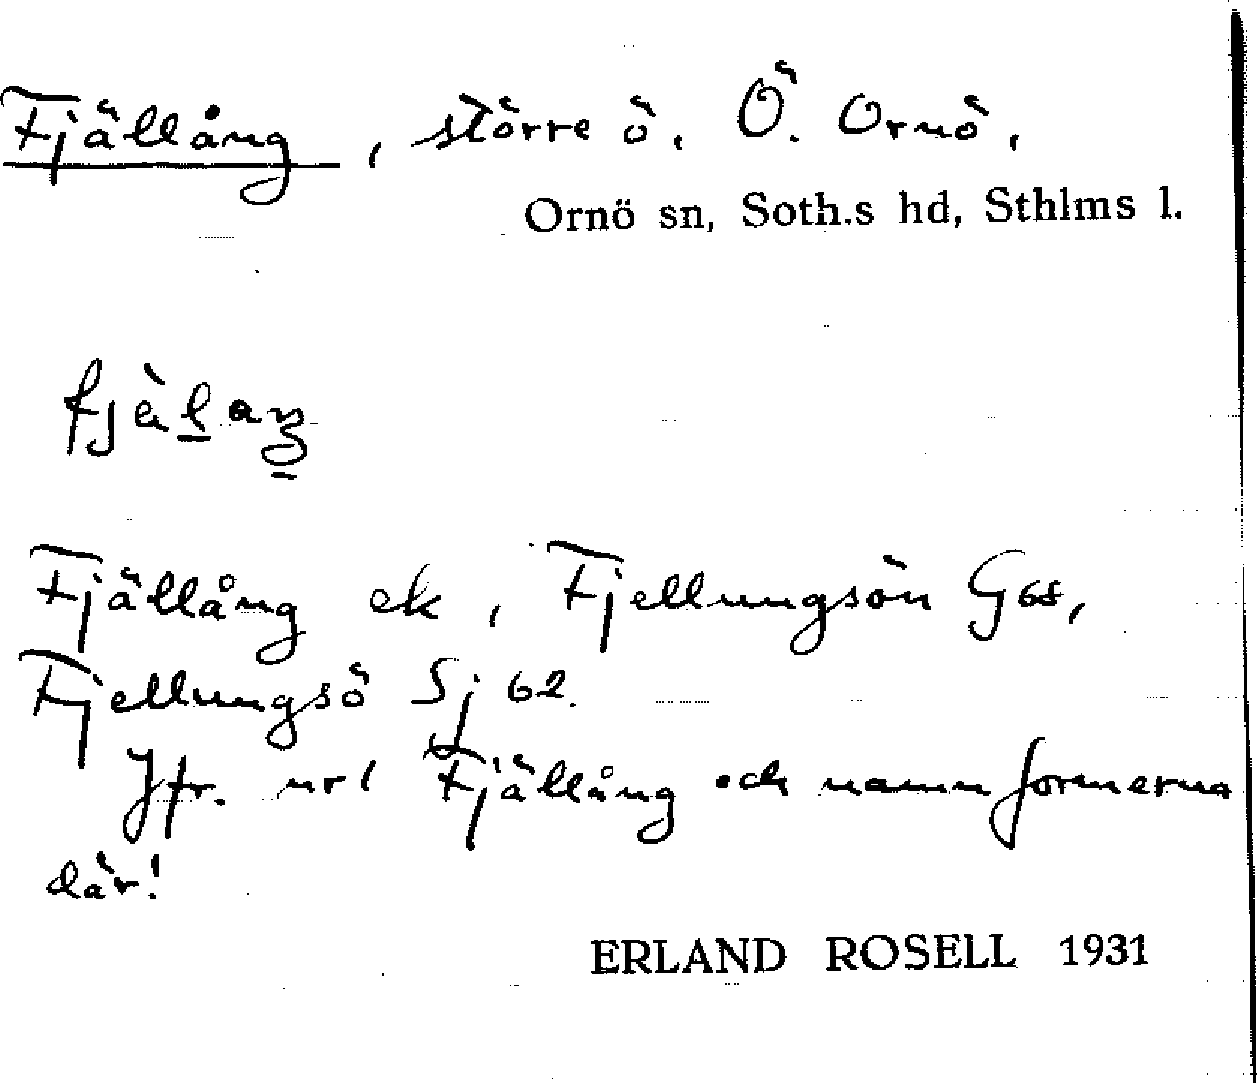 Fjällång, större ö, Ö. Ornö,
Ornö sn, Soth.s hd, Sthlms l.
Fjällång ek, Fjellungsön Gss,
Fjellungsö Sj 62.
Jfr. nr 1 Fjällång och namnformerna
där!
ERLAND ROSELL 1931